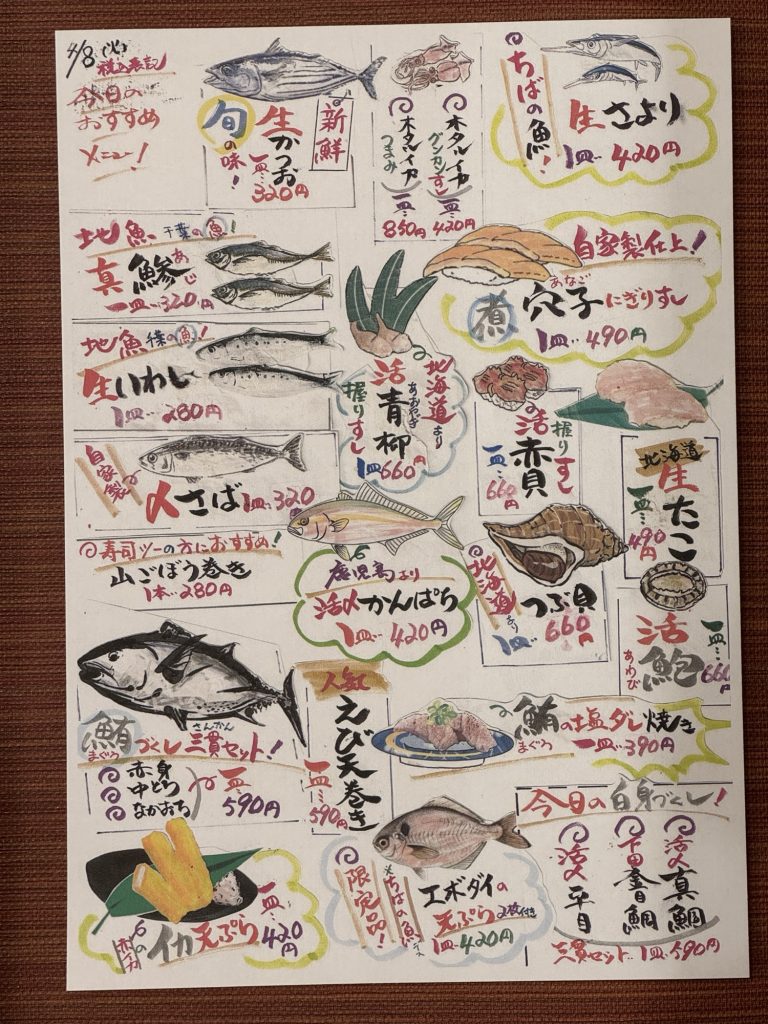 4/8(火)
税込表記
今日の
おすすめ
メニュー!
旬の味!
生かつお
一皿…320円
新鮮
ホタルイカ
つまみ
一皿…850円
ホタルイカ
グンカンすし
一皿…420円
ちばの魚!
生さより
1皿…420円
地魚 千葉の魚!
真鯵
あじ
一皿…320円
自家製仕上!
煮穴子にぎりすし
あなご
1皿…490円
地魚 千葉の魚!
生いわし
1皿…280円
北海道より
活青柳
あおやぎ
握りすし
1皿660円
活赤貝
握りすし
一皿…660円
北海道
生たこ
一皿…490円
自家製
〆さば 1皿…320
◎寿司ツーの方におすすめ!
山ごぼう巻き
1本…280円
鹿児島より
活〆かんぱち
1皿…420円
北海道より
つぶ貝
1皿…660円
活鮑
あわび
一皿…660
鮪づくし三貫セット!
まぐろ さんかん
赤身
中とろ
なかおち
一皿…590円
人気
えび天巻き
一皿…590円
鮪の塩ダレ焼き
まぐろ
一皿…390円
今日の白身づくし!
活〆真鯛
下田金目鯛
活〆平目
三貫セット…1皿…590円
イカ天ぷら
一皿…420円
限定品!
ちばの魚
エボダイの
天ぷら 2枚付き
1皿…420円